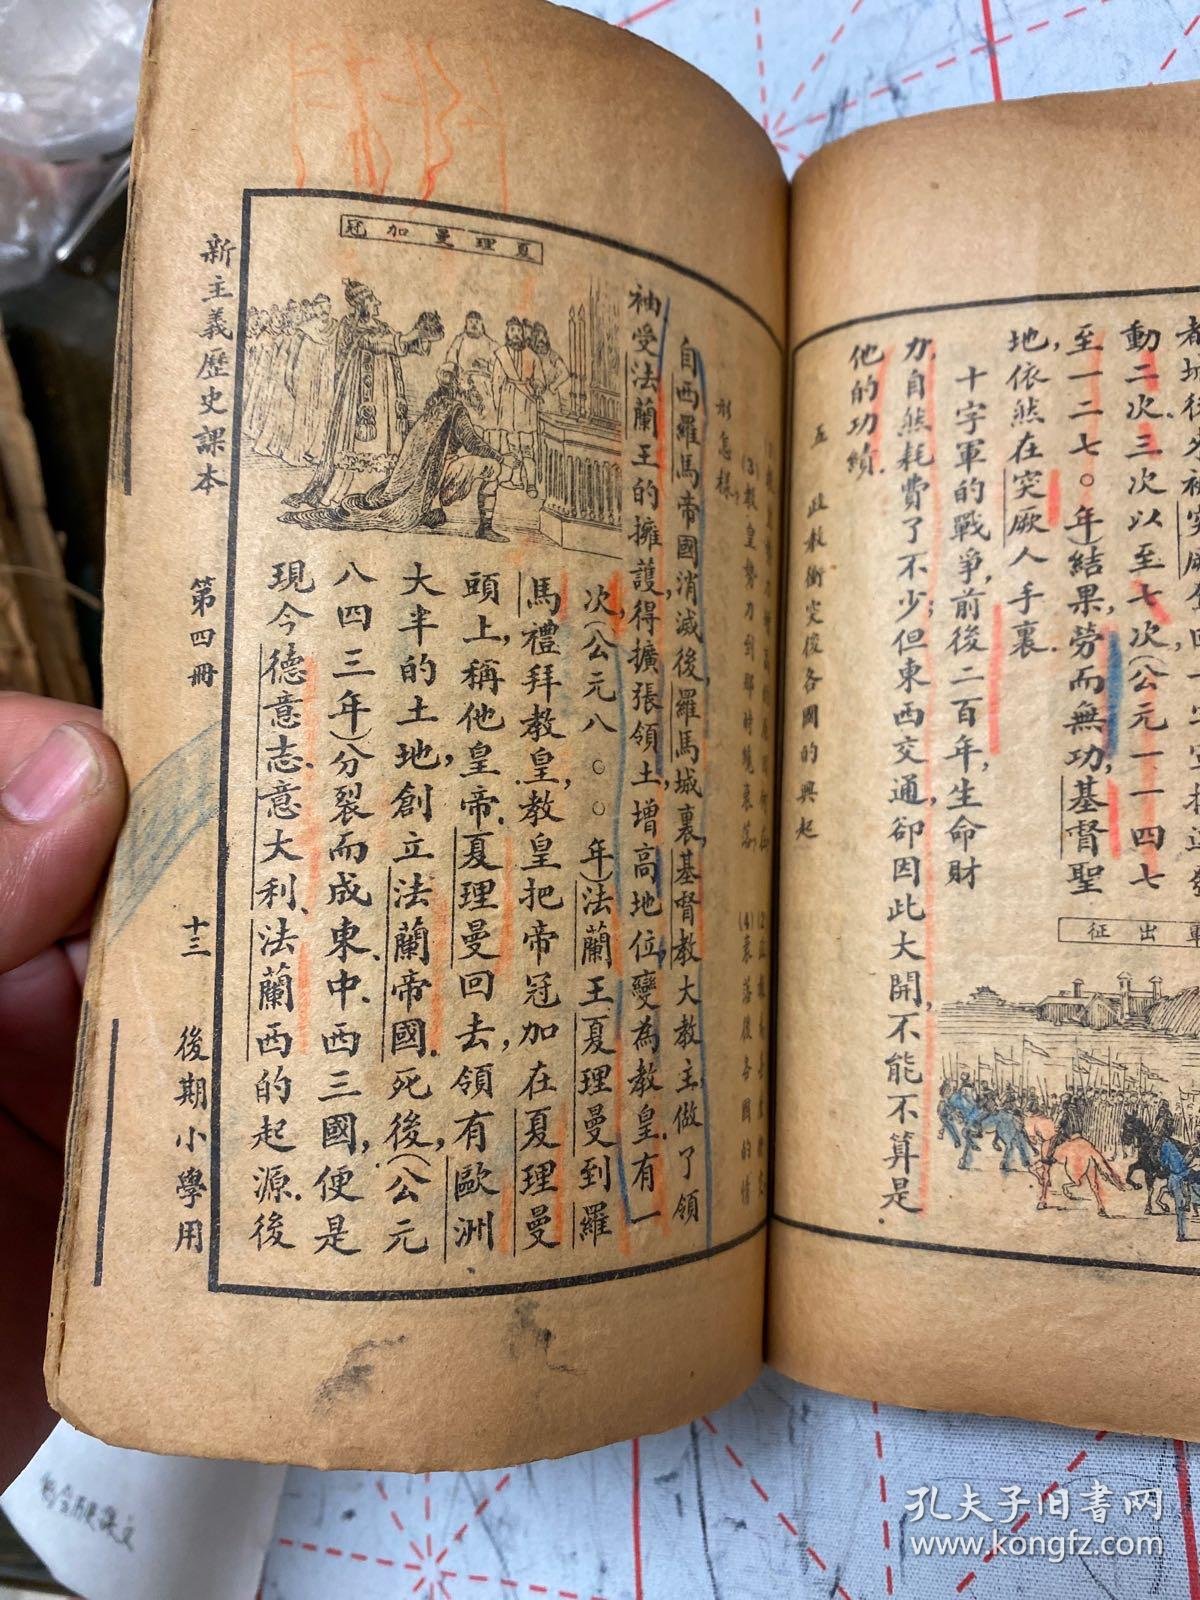 動二次、三次以至七次(公元一一四七
至一二七〇年)結果勞而無功,基督聖
地,依然在突厥人手裏.
十字軍的戰爭,前後二百年,生命財
力,自然耗費了不少;但東西交通,卻因此大開,不能不算是
他的功績.
軍出征
五 政教衝突後各國的興起
(3)教皇勢力到那時纔衰落.
(4)衰落後各國的情
形怎樣.
自西羅馬帝國消滅後,羅馬城裏,基督教大教主,做了領
袖,受法蘭王的擁護,得擴張領土,增高地位,變為教皇.有一
次,(公元八〇〇年)法蘭王夏理曼到羅
馬禮拜教皇,教皇把帝冠加在夏理曼
頭上,稱他皇帝.夏理曼回去,領有歐洲
大半的土地,創立法蘭帝國.死後,(公元
八四三年)分裂而成東、中、西三國,便是
現今德意志、意大利、法蘭西的起源.後
夏理曼加冠
新主義歷史課本 第四冊 十三 後期小學用
孔夫子旧书网
www.kongfz.com